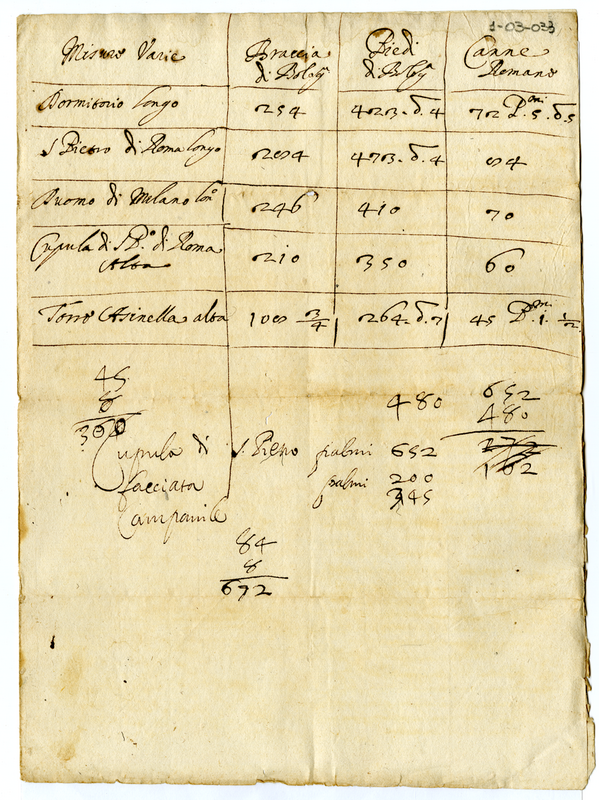 1-03-033
Misure Varie Braccia di Bolog. Piedi di Bolog. Canne Romane
Dormitorio longo 254 423. d. 4 72 P.mi 5. d. 5
S Pietro di Roma longo 284 473. d. 4 84
Duomo di Milano lon.o 246 410 70
Cupula di S P.o di Roma Alta 210 350 60
Torre Asinella alta 158 3/4 264. d. 7 45 P.mi 1. 1/2
45
8
360
480
652
480
Cupula di S. Pietro palmi 652
facciata palmi 200
Campanile 345
84
8
672